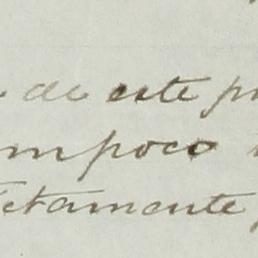 de este p
mpoco
etamente